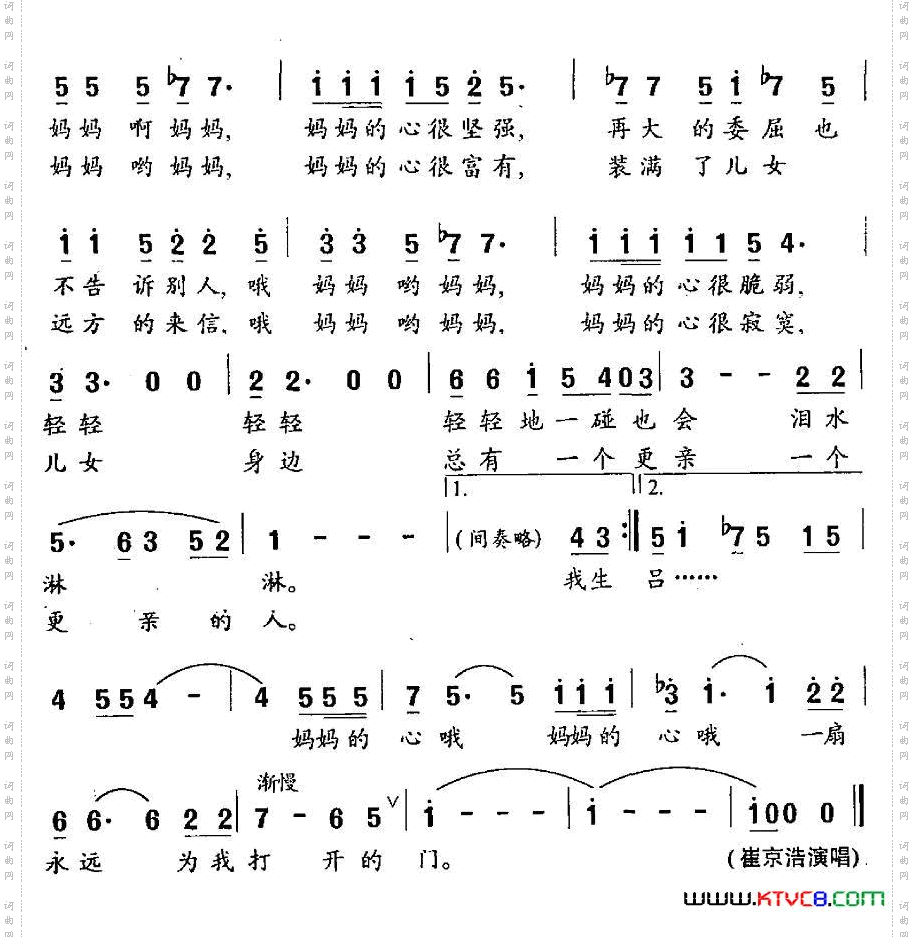 5 5 5 ♭7 7· | i i i i 5 2 5· | ♭7 7 5 i ♭7 5
妈妈 啊 妈妈, 妈妈的心很坚强, 再大 的委屈也
妈妈 哟 妈妈, 妈妈的心很富有, 装满 了儿女
i i 5 2 2 5 | 3 3 5 ♭7 7· | i i i i i 5 4· |
不告 诉别人, 哦 妈妈 哟 妈妈, 妈妈的心很脆弱,
远方 的来信, 哦 妈妈 哟 妈妈, 妈妈的心很寂寞,
3 3· 0 0 | 2 2· 0 0 | 6 6 i 5 4 0 3 | 3 - - 2 2 |
轻轻 轻轻 轻轻地一碰也会 泪水
儿女 身边 总有 一个更亲 一个
1. 2.
5· 6 3 5 2 | 1 - - - | (间奏略) 4 3 :‖ 5 i ♭7 5 1 5 |
淋 淋。 我生 吕……
更 亲 的人。
4 5 5 4 - | 4 5 5 5 | 7 5· 5 i i i | ♭3 i· i 2 2 |
妈妈的 心哦 妈妈的 心哦 一扇
渐慢
6 6· 6 2 2 | 7 - 6 5 ∨ | i - - - | i - - - | i 0 0 0 ‖
永远 为我打 开的门。 (崔京浩演唱)
www.KTVC8.com
词曲网